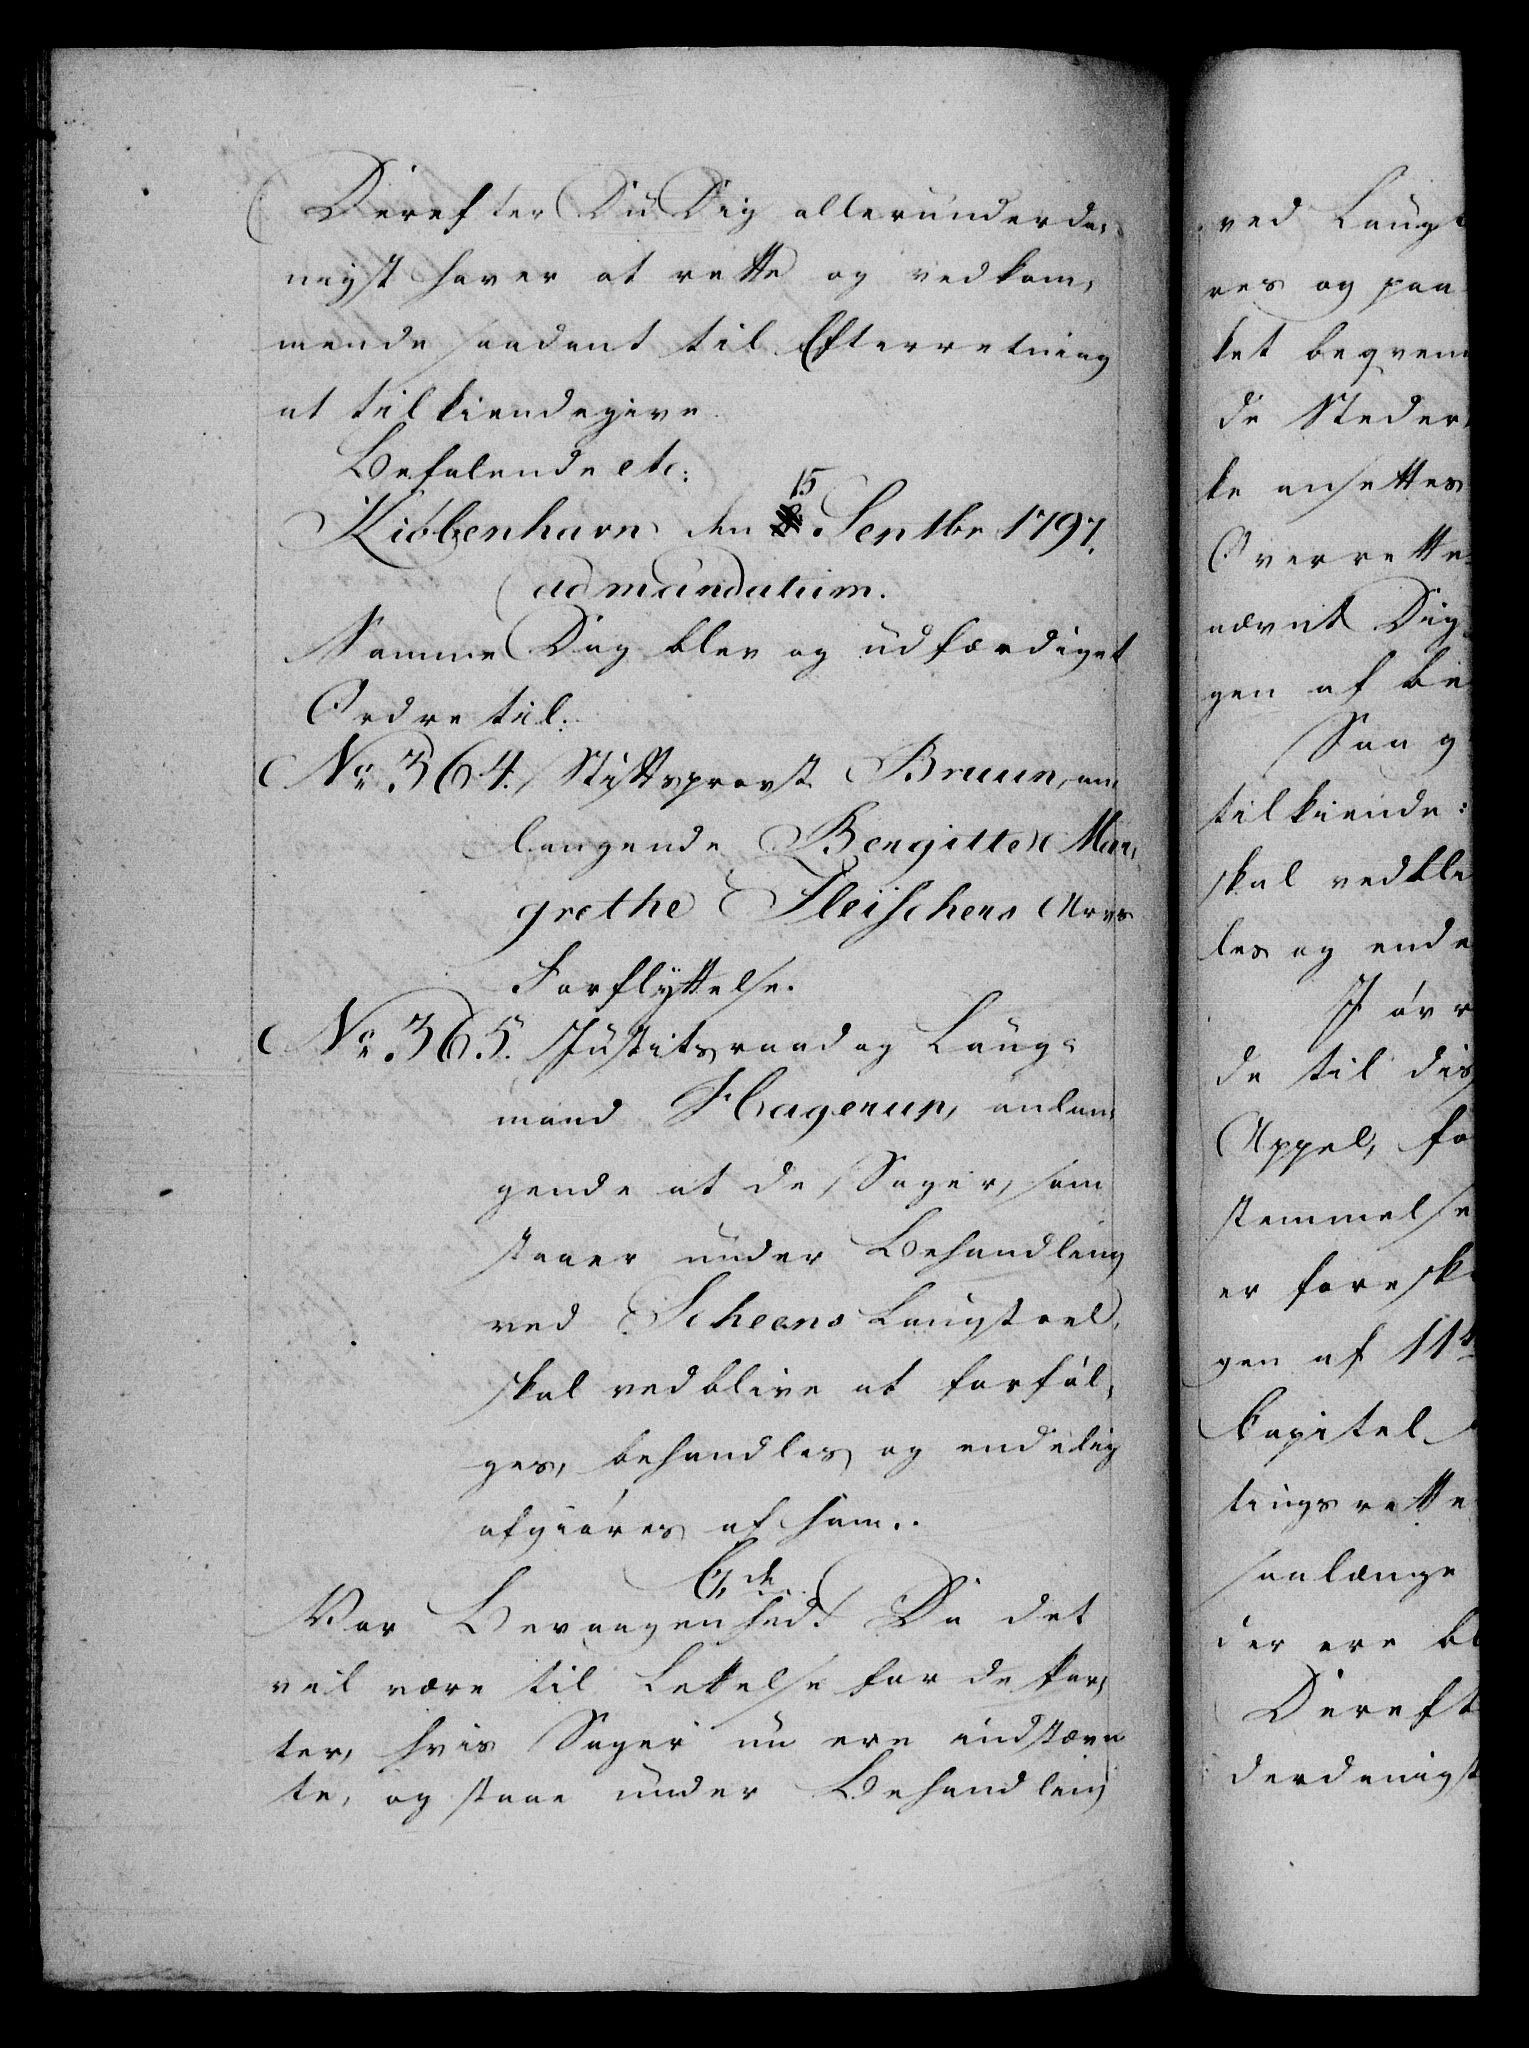 Derefter Du Dig allerunderda-
nigst haver at rette og vedkom-
mende saadant til Efterretning
at tilkiendegive
Befalende etc:
15
Kiøbenhavn den Sentbr 1797.
ad mandatum.
Samme Dag blev og udfærdiget
Ordre til:
No 364. Stiftsprovst Bruun, an-
langende Bergitte Mar-
grethe Fleischers Arvs
Forflyttelse.
No 365. Justitsraad og Laug-
mand Hagerup, anlan-
gende at de Sager, som
staaer under Behandling
ved Scheens Laugstoel,
skal vedblive at forføl-
ges, behandles og endelig
afgiøres af ham.
G. de
Vor Bevaagenhed! Da det
vil være til Lettelse for de Par-
ter, hvis Sager nu ere indstævn
te, og staae under Behandling
ved Laug
res og paa
ket beqvem
de Steder
ke ansettes
Overrette
nævnt Dig
gen af be
Saa g
tilkiende:
skal vedbli
les og ende
I øvr
de til dis
Appel, fo
stemmelse
er foresk
gen af 11te
Capitel
tingsrette
saalænge
der ere bl
Dereft
derdanigst